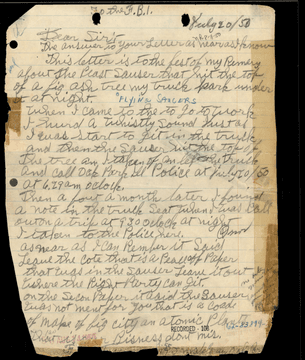 To the F.B.I.
July 20/50
Dear Sir:
The answer to your Letter as near as I know
This letter is to the best of my
about the Fleat Sauser that hit the top
of a big ash tree my truck park under
it at night. "FLYING SAUCERS"
When I came to the to go to work
I hurd a whistly Sound Just as
I was start to get in the truck
and then the Sauser hit the top of
the tree an I taken of in my truck
and Call Oak Park Ill Police at July 20/50
at 6:29 am oclock.
Then a four a month later I found
a note in the truck Seat when I was Call
out on a trip at 9:30 oclock at night
I taken to the Police here
as near as I Can Rember it Said
Leave the cote that is a Peace of Paper
that was in the Sauser Leave it out
Where the Right Party Can Git
on the Secon Paper it said the Sauser
was not ment for you that is a Code
of Maps of big city an atomic Plant
RECORDED - 108
that Bisness dont mis.